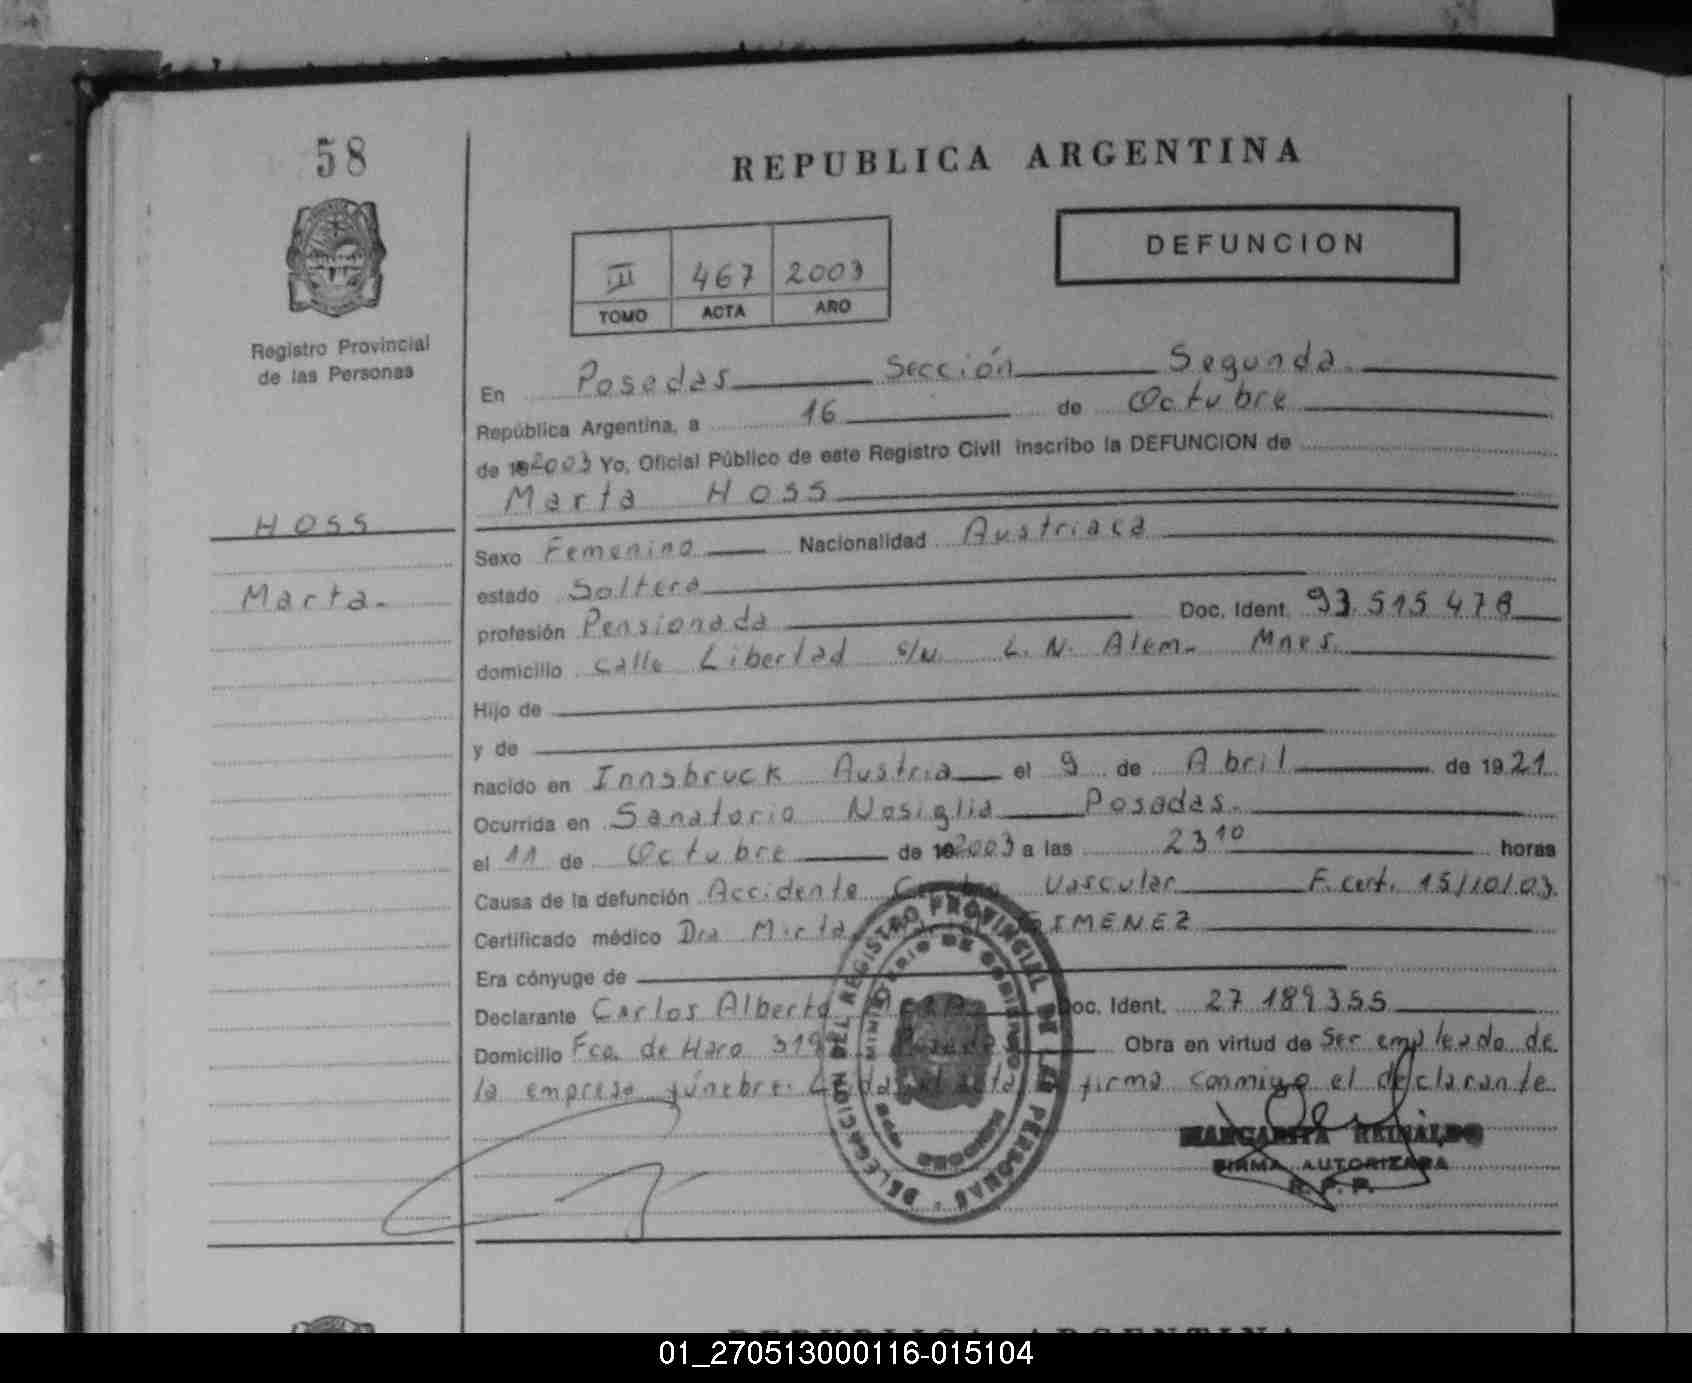 58
REPUBLICA ARGENTINA
DEFUNCION
III 467 2003
TOMO ACTA AÑO
Registro Provincial
de las Personas
En Posadas Sección Segunda
República Argentina, a 16 de Octubre
de 2003 Yo, Oficial Público de este Registro Civil inscribo la DEFUNCION de
Marta HOSS
HOSS
Marta.
Sexo Femenino Nacionalidad Austriaca
estado Soltera
profesión Pensionada Doc. Ident. 93.515.478
domicilio calle Libertad s/N. L. N. Alem. Mnes.
Hijo de
y de
nacido en Innsbruck Austria el 9 de Abril de 1921
Ocurrida en Sanatorio Nosiglia Posadas.
el 11 de Octubre de 2003 a las 23 10 horas
Causa de la defunción Accidente Cerebro Vascular F. cert. 15/10/03.
Certificado médico Dra Mirta GIMENEZ
Era cónyuge de
Declarante Carlos Alberto Doc. Ident. 27.189.355
Domicilio Fco. de Haro Obra en virtud de Ser empleado de
la empresa fúnebre. Leída el acta firma conmigo el declarante
DELEGACION DEL REGISTRO PROVINCIAL DE LAS PERSONAS
MINISTERIO DE GOBIERNO
MARGARITA REINALDO
FIRMA AUTORIZADA
R. P. P.
REPUBLICA ARGENTINA
01_270513000116-015104